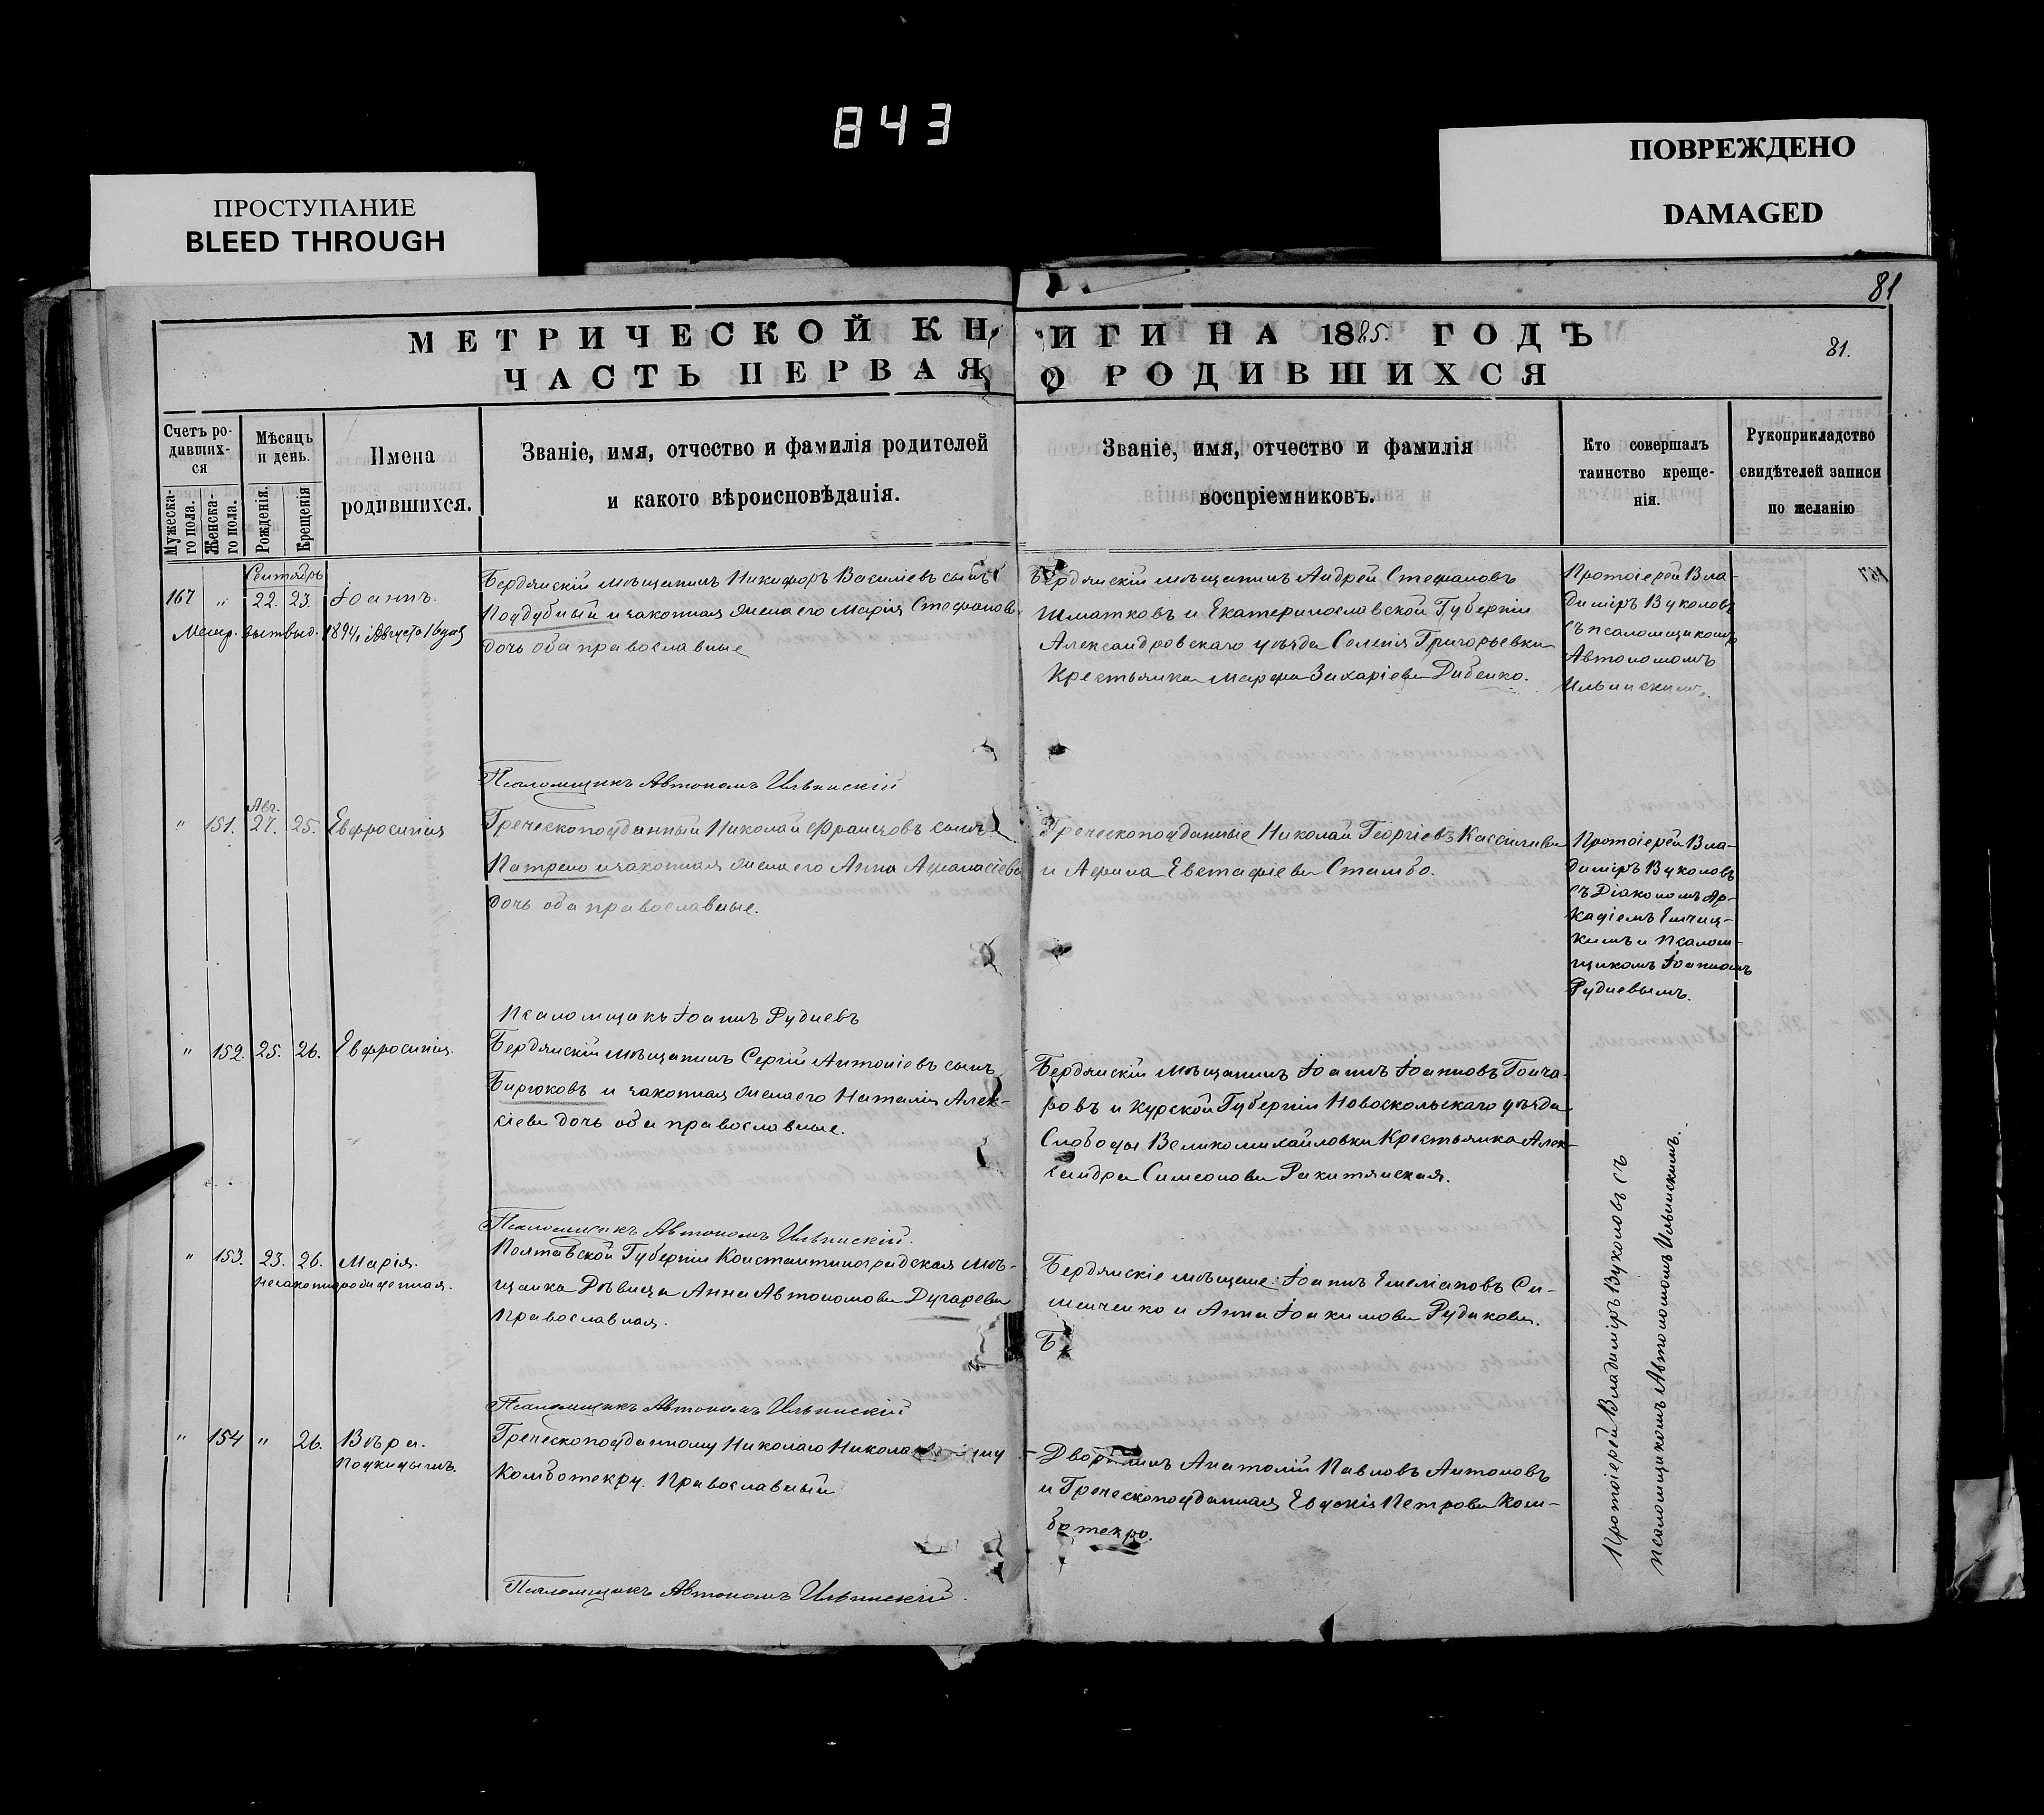 843
ПРОСТУПАНИЕ
BLEED THROUGH
ПОВРЕЖДЕНО
DAMAGED
81
МЕТРИЧЕСКОЙ КНИГИ НА 1885 ГОДЪ
81.
ЧАСТЬ ПЕРВАЯ О РОДИВШИХСЯ
Счетъ ро-
дивших-
ся
Мужеска-
го пола.
Женска-
го пола.
Мѣсяцъ
и день.
Рожденія.
Крещенія
Имена
родившихся.
Званіе, имя, отчество и фамилія родителей
и какого вѣроисповѣданія.
Званіе, имя, отчество и фамилія
воспріемниковъ.
Кто совершалъ
таинство креще-
нія.
Рукоприкладство
свидѣтелей записи
по желанію
Сентябрь
167 " 22. 23. Іоаннъ.
Метр. выт выд. 1894, Августа 16 дня
Бердянскій мѣщанинъ Никифоръ Василіевъ сынъ
Поддубный и законная жена его Марія Стефанов
дочь оба православные
Бердянскій мѣщанинъ Андрей Стефановъ
Шматковъ и Екатеринославской Губерніи
Александровскаго уѣзда Селенія Григорьевки
Крестьянка Марфа Захаріева Дибенко.
Протоіерей Вла-
диміръ Вуколовъ
съ псаломщикомъ
Автономомъ
Ильинскимъ.
Псаломщикъ Автономъ Ильинскій
Авг.
" 151. 27. 25. Евфросинія
Греческоподданный Николай Францовъ сынъ
Патрело и законная жена его Анна Афанасіева
дочь оба православные.
Греческоподданные Николай Георгіевъ
и Афина Евстафіева Стамбо.
Протоіерей Вла-
диміръ Вуколовъ
съ Діакономъ Ар-
кадіемъ
кимъ и псалом-
щикомъ Іоанномъ
Рудневымъ.
Псаломщикъ Іоаннъ Рудневъ
" 152. 25. 26. Евфросинія.
Бердянскій мѣщанинъ Сергій Антоніевъ сынъ
Бирюковъ и законная жена его Наталія Алек-
сіева дочь оба православные.
Бердянскій мѣщанинъ Іоаннъ Іоанновъ Гонча-
ровъ и Курской Губерніи Новоскольскаго уѣзда
Слободы Великомихайловки Крестьянка Алек-
сандра Симеонова Ракитянская.
Псаломщикъ Автономъ Ильинскій.
" 153. 23. 26. Марія.
незаконнорожденная.
Полтавской Губерніи Константиноградская мѣ-
щанка Дѣвица Анна Автономова Дугарева
православная.
Бердянскіе мѣщане: Іоаннъ Емеліановъ Си-
менченко и Анна Іоакимова Рудакова.
Б
Псаломщикъ Автономъ Ильинскій
" 154 " 26. Вѣра.
Подкидышъ.
Греческоподданному Николаю
Комботекру. Православный
Дворянинъ Анатолій Павловъ Антоновъ
и Греческоподданная Евдокія Петрова Ком-
ботекро.
Протоіерей Владиміръ Вуколовъ съ
псаломщикомъ Автономомъ Ильинскимъ.
Псаломщикъ Автономъ Ильинскій.